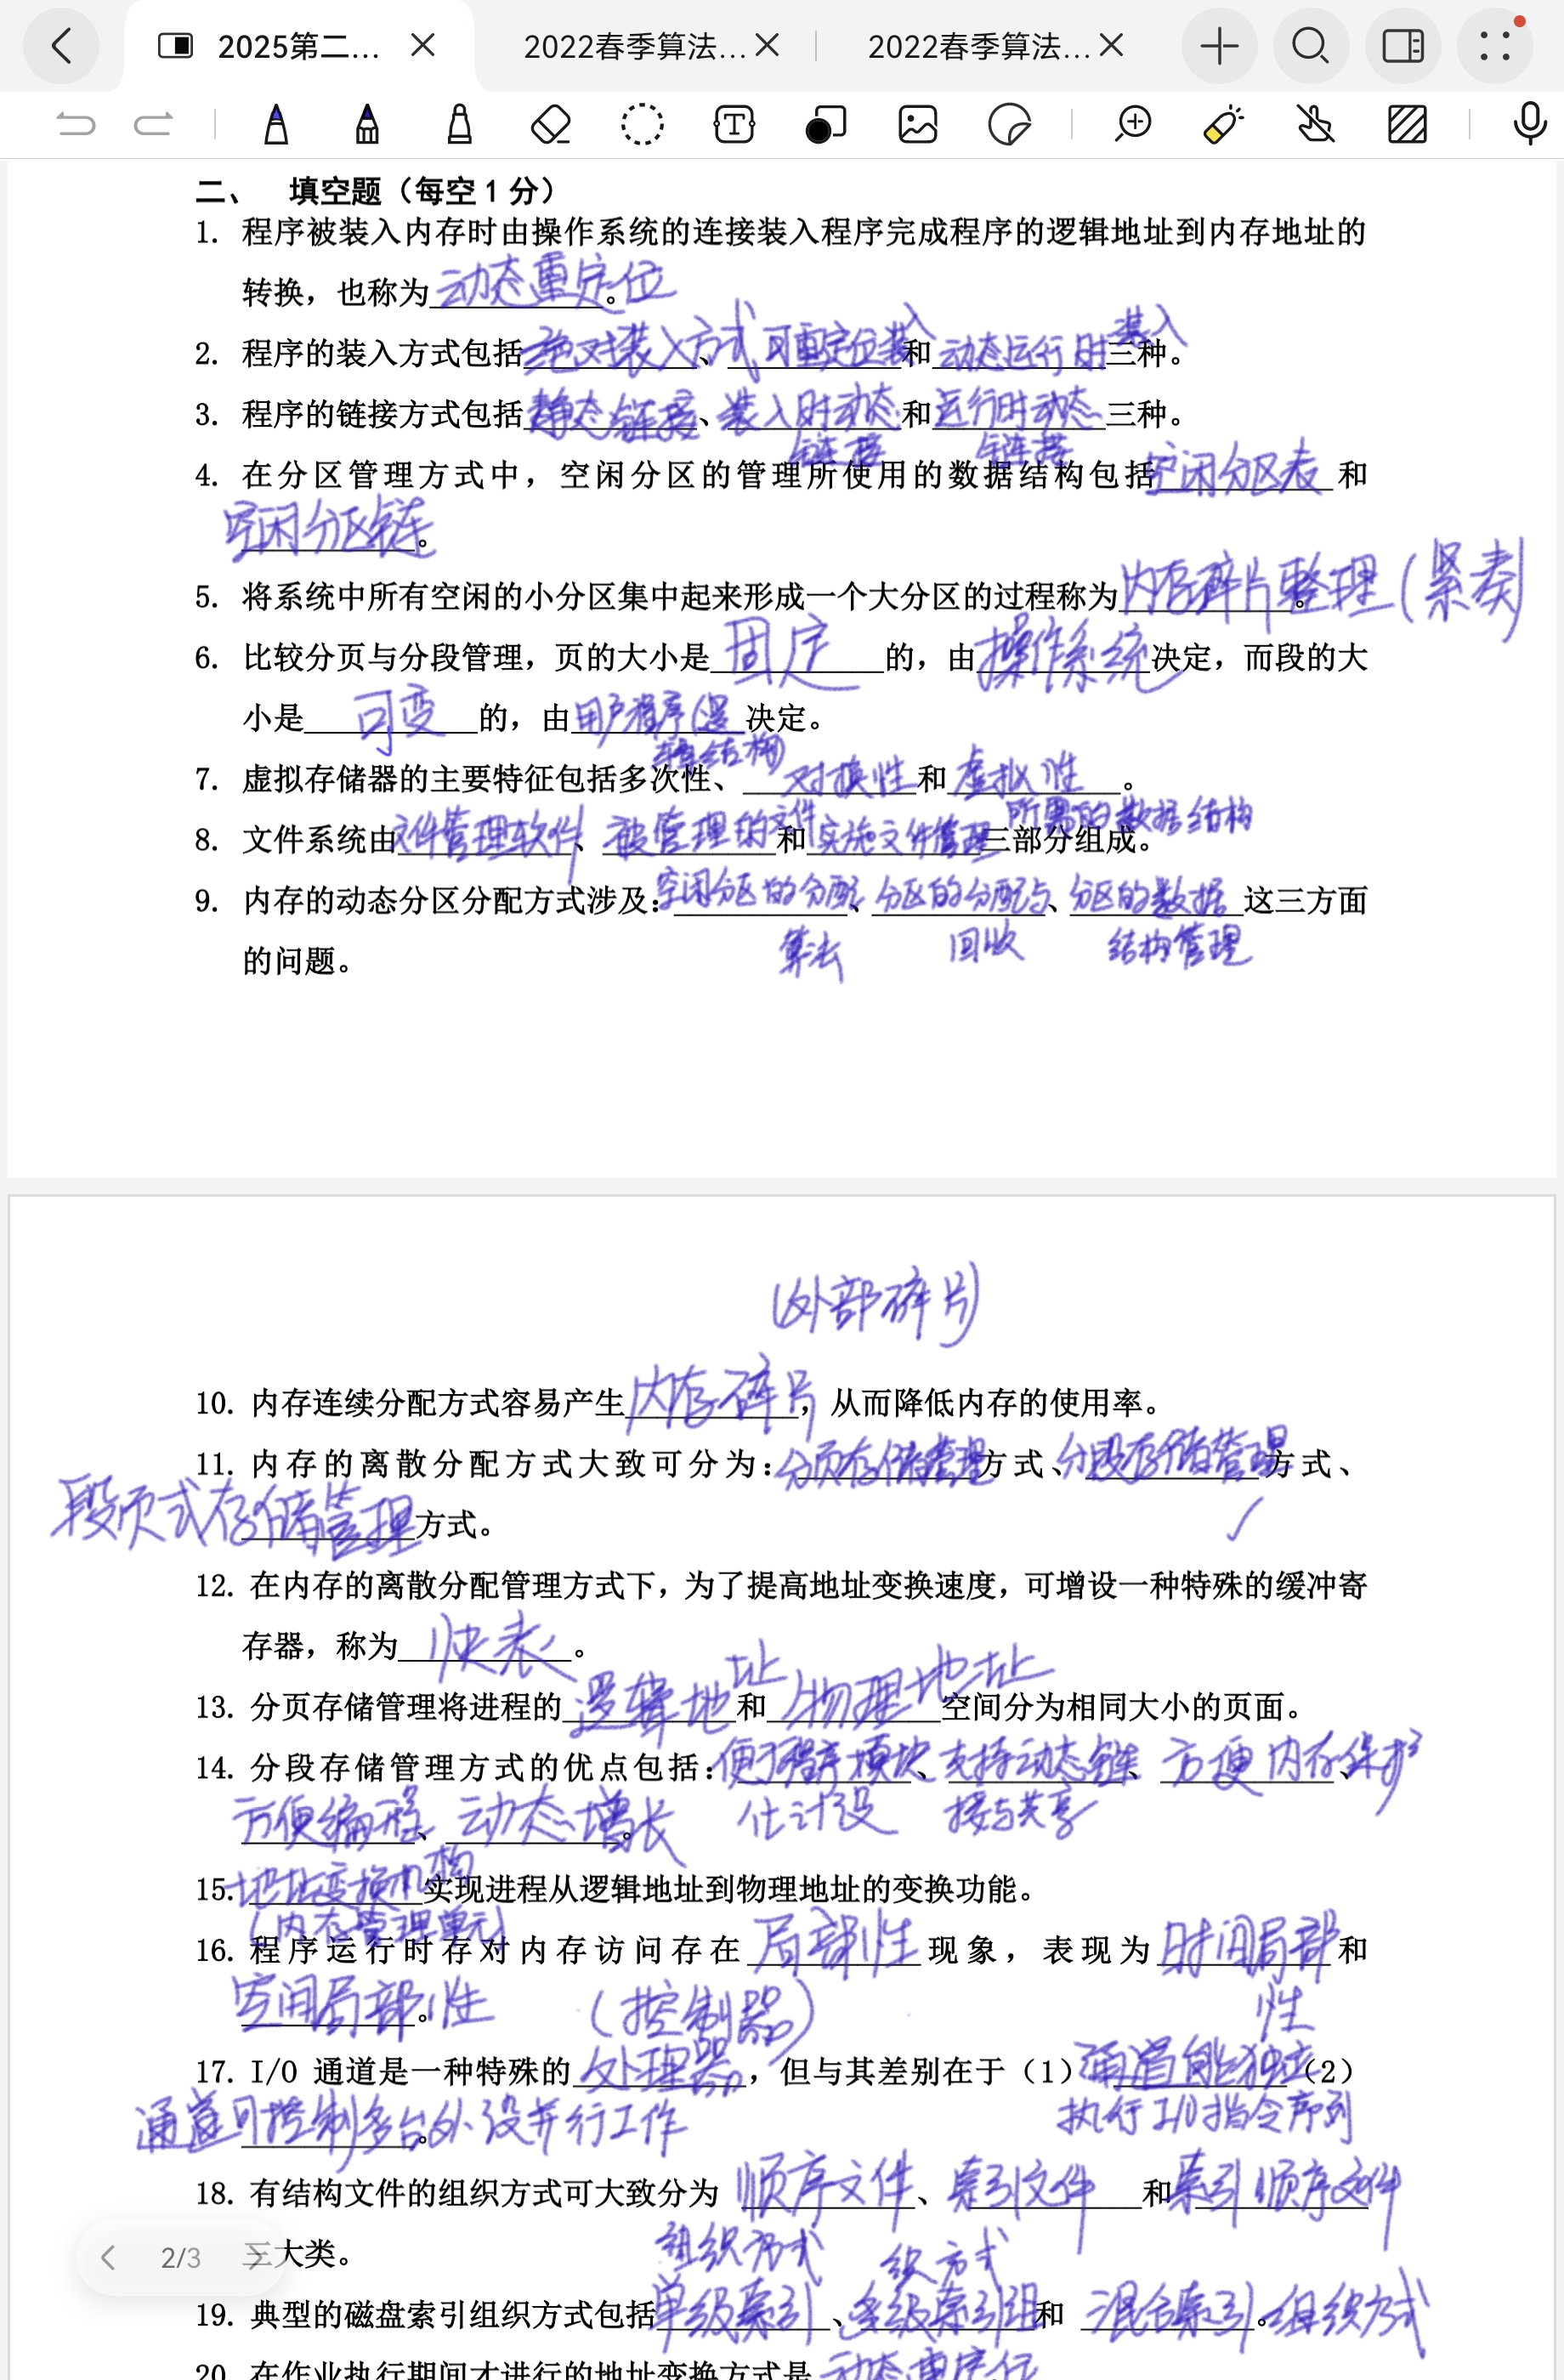 2025第二... 2022春季算法... 2022春季算法...
二、 填空题（每空 1 分）
1. 程序被装入内存时由操作系统的连接装入程序完成程序的逻辑地址到内存地址的
转换，也称为动态重定位。
2. 程序的装入方式包括绝对装入方式、可重定位装入和动态运行时装入三种。
3. 程序的链接方式包括静态链接、装入时动态链接和运行时动态链接三种。
4. 在分区管理方式中，空闲分区的管理所使用的数据结构包括空闲分区表和
空闲分区链。
5. 将系统中所有空闲的小分区集中起来形成一个大分区的过程称为内存碎片整理(紧凑)。
6. 比较分页与分段管理，页的大小是固定的，由操作系统决定，而段的大
小是可变的，由用户程序(逻辑结构)决定。
7. 虚拟存储器的主要特征包括多次性、对换性和虚拟性。
8. 文件系统由文件管理软件、被管理的文件和实施文件管理所需的数据结构三部分组成。
9. 内存的动态分区分配方式涉及：空闲分区的分配算法、分区的分配与回收、分区的数据结构管理这三方面
的问题。
(外部碎片)
10. 内存连续分配方式容易产生内存碎片，从而降低内存的使用率。
11. 内存的离散分配方式大致可分为：分页存储管理方式、分段存储管理方式、
段页式存储管理方式。
12. 在内存的离散分配管理方式下，为了提高地址变换速度，可增设一种特殊的缓冲寄
存器，称为快表。
13. 分页存储管理将进程的逻辑地址和物理地址空间分为相同大小的页面。
14. 分段存储管理方式的优点包括：便于程序模块化计设、支持动态链接与共享、方便内存保护、
方便编程、动态增长。
15. 地址变换机构(内存管理单元)实现进程从逻辑地址到物理地址的变换功能。
16. 程序运行时存对内存访问存在局部性现象，表现为时间局部性和
空间局部性。
17. I/O 通道是一种特殊的处理器(控制器)，但与其差别在于（1）通道能独立执行I/O指令序列（2）
通道可控制多台外设并行工作。
18. 有结构文件的组织方式可大致分为 顺序文件、索引文件和索引顺序文件
三大类。
2/3
19. 典型的磁盘索引组织方式包括单级索引组织方式、多级索引组织方式和 混合索引组织方式。
20. 在作业执行期间才进行的地址变换方式是动态重定位